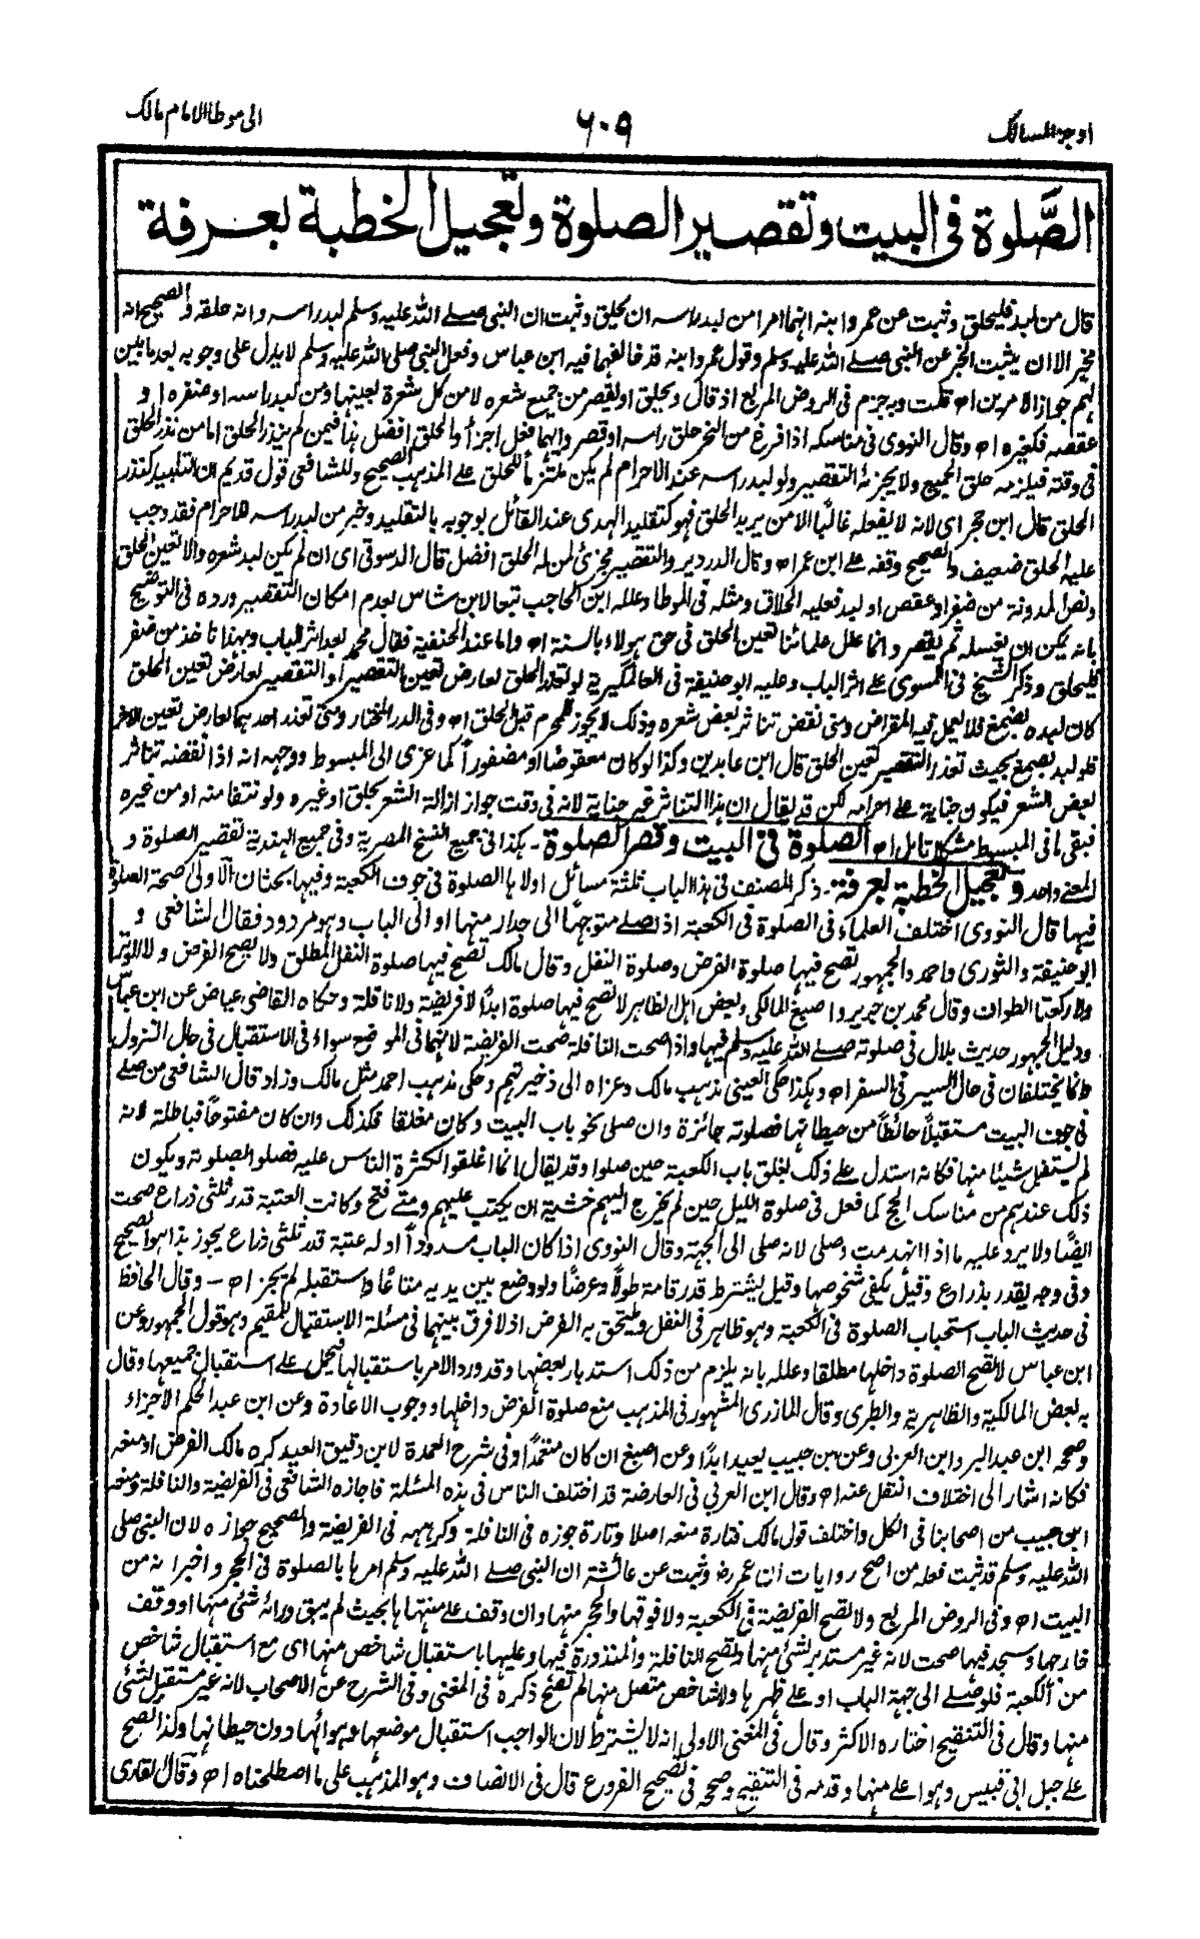 اوجز المسالك ٦٠٩ الى موطا الامام مالك
الصَّلوة في البيت وتقصير الصلوة وتعجيل الخطبة بعرفة
قال من لبد فليحلق وثبت عن عمر وابنه انهما امرا من لبد راسه ان يحلق وثبت ان النبي صلے اللہ عليه وسلم لبد راسه وانه حلقه والصحيح انه
مخير الا ان يثبت الخبر عن النبي صلے اللہ عليه وسلم وقول عمر وابنه قد خالفهما فيه ابن عباس وفعل النبي صلى اللہ عليه وسلم لا يدل على وجوبه بعد ما بين
لهم جواز الامرين اھ قلت وبه جزم في الروض المربع اذ قال ويحلق او يقصر من جميع شعره لا من كل شعرة بعينها ومن لبد راسه او ضفره او
عقصه فكغيره اھ وقال النووي في مناسكه اذا فرغ من النحر حلق راسه او قصر وايهما فعل اجزأ والحلق افضل هذا فيمن لم ينذر الحلق اما من نذر الحلق
في وقته فيلزمه حلق الجميع ولا يجزئه التقصير ولو لبد راسه عند الاحرام لم يكن ملتزماً للحلق على المذهب الصحيح وللشافعي قول قديم ان التلبيد كنذر
الحلق قال ابن حجر اي لانه لا يفعله غالبًا الا من يريد الحلق فهو كتقليد الهدى عند القائل بوجوبه بالتقليد وخبر من لبد راسه للاحرام فقد وجب
عليه الحلق ضعيف والصحيح وقفه علے ابن عمر اھ وقال الدردير والتقصير مجزئ لمن له الحلق افضل قال الدسوقي اي ان لم يكن لبد شعره والا تعين الحلق
ونص المدونة من ضفر او عقص او لبد فعليه الحلاق ومثله في الموطا وعلله ابن الحاجب تبعا لابن شاس بعدم امكان التقصير ورده في التوضيح
بانه يمكن ان يغسله ثم يقصر وانما علل علمائنا تعين الحلق في حق هولاء بالسنة اھ واما عند الحنفية فقال محمد بعد اثر الباب وبهذا ناخذ من ضفر
فليحلق وذكر الشيخ في المسوى على اثر الباب وعليه ابو حنيفة في العالمگيرية لو تعذر الحلق لعارض تعين التقصير او التقصير لعارض تعين الحلق
كان لبده بصمغ فلا يعمل فيه المقراض ومتى نقض تناثر بعض شعره وذلك لا يجوز للمحرم قبل الحلق اھ وفي الدر المختار ومتى تعذر احدهما لعارض تعين الاخر
فلو لبد بصمغ بحيث تعذر التقصير تعين الحلق قال ابن عابدين وكذا لو كان معقوصًا او مضفوراً كما عزي الى المبسوط ووجهه انه اذا نقضه تناثر
بعض الشعر فيكون جناية على احرامه لكن قد يقال ان هذا التناثر غير جناية لانه في وقت جواز ازالة الشعر بحلق او غيره ولو نتفا منه او من غيره
فبقي ما في المبسوط مشكلا تامل اھ الصلوة في البيت وقصر الصلوة ۔ هكذا في جميع النسخ المصرية وفي جميع الهندية تقصير الصلوة و
المعنے واحد وتعجيل الخطبة بعرفة ۔ ذكر المصنف في هذا الباب ثلثة مسائل اولاها الصلوة في جوف الكعبة وفيها بحثان الاولى صحة الصلوة
فيها قال النووي اختلف العلماء في الصلوة في الكعبة اذا صلے متوجهاً الى جدار منها او الى الباب وهو مردود فقال الشافعي و
ابو حنيفة والثوري واحمد والجمهور تصح فيها صلوة الفرض وصلوة النفل وقال مالك تصح فيها صلوة النفل المطلق ولا يصح الفرض ولا الوتر
ولا ركعتا الطواف وقال محمد بن جرير واصبغ المالكي وبعض اهل الظاهر لا تصح فيها صلوة ابدًا لا فريضة ولا نافلة وحكاه القاضي عياض عن ابن عباس
ودليل الجمهور حديث بلال في صلوته صلے اللہ عليه وسلم فيها واذا صحت النافلة صحت الفريضة لانهما في الموضع سواء في الاستقبال في حال النزول
وانما يختلفان في حال السير في السفر اھ وهكذا حكى العيني مذهب مالك وعزاه الى ذخيرتهم وحكى مذهب احمد مثل مالك وزاد قال الشافعي من صلے
في جوف البيت مستقبلاً حائطاً من حيطانها فصلوته جائزة وان صلى نحو باب البيت وكان مغلقا فكذلك وان كان مفتوحاً فباطلة لانه
لم يستقبل شيئا منها فكانه استدل علے ذلك بغلق باب الكعبة حين صلوا وقد يقال انما اغلقوا لكثرة الناس عليه فصلوا بصلوته ويكون
ذلك عندهم من مناسك الحج كما فعل في صلوة الليل حين لم يخرج اليهم خشية ان يكتب عليهم ومتے فتح وكانت العتبة قدر ثلثي ذراع صحت
ايضًا ولا يرد عليه ما اذا انهدمت وصلى لانه صلى الى الجهة وقال النووي اذا كان الباب مسدوداً او له عتبة قدر ثلثي ذراع يجوز هذا هو الصحيح
وفي وجه يقدر بذراع وقيل يكفي شخوصها وقيل يشترط قدر قامة طولاً وعرضًا ولو وضع بين يديه متاعًا واستقبله لم يجز اھ ۔ وقال الحافظ
في حديث الباب استحباب الصلوة في الكعبة وهو ظاهر في النفل ويلتحق به الفرض اذ لا فرق بينهما في مسئلة الاستقبال للمقيم وهو قول الجمهور وعن
ابن عباس لا تصح الصلوة داخلها مطلقا وعلله بانه يلزم من ذلك استدبار بعضها وقد ورد الامر باستقبالها فيحمل علے استقبال جميعها وقال
به بعض المالكية والظاهرية والطبري وقال المازري المشهور في المذهب منع صلوة الفرض داخلها ووجوب الاعادة وعن ابن عبد الحكم الاجزاء
وصححه ابن عبد البر وابن العربي وعن ابن حبيب يعيد ابدًا وعن اصبغ ان كان متعمدًا وفي شرح العمدة لابن دقيق العيد كره مالك الفرض او منعه
فكانه اشار الى اختلاف النقل عنه اھ وقال ابن العربي في العارضة قد اختلف الناس في هذه المسئلة فاجازه الشافعي في الفريضة والنافلة ومنعه
ابن حبيب من اصحابنا في الكل واختلف قول مالك فتارة منعه اصلا وتارة جوزه في النافلة وكرهه في الفريضة والصحيح جوازه لان النبي صلى
اللہ عليه وسلم قد ثبت فعله من اصح روايات ابن عمر رض وثبت عن عائشة ان النبي صلے اللہ عليه وسلم امرها بالصلوة في الحجر واخبر انه من
البيت اھ وفي الروض المربع ولا تصح الفريضة في الكعبة ولا فوقها والحجر منها وان وقف على منتهاها بحيث لم يبق ورائه شئ منها او وقف
خارجها وسجد فيها صحت لانه غير مستدبر لشئ منها وتصح النافلة والمنذورة فيها وعليها باستقبال شاخص منها اي مع استقبال شاخص
من الكعبة فلو صلے الى جهة الباب او علے ظهرها ولا شاخص متصل منها لم تصح ذكره في المغني وفي الشرح عن الاصحاب لانه غير مستقبل لشئ
منها وقال في التنقيح اختاره الاكثر وقال في المغني الاولى انه لا يشترط لان الواجب استقبال موضعها وهوائها دون حيطانها ولذا تصح
علے جبل ابي قبيس وهو اعلے منها وقدمه في التنقيح وصححه في تصحيح الفروع قال في الانصاف وهو المذهب على ما اصطلحناه اھ وقال القاري